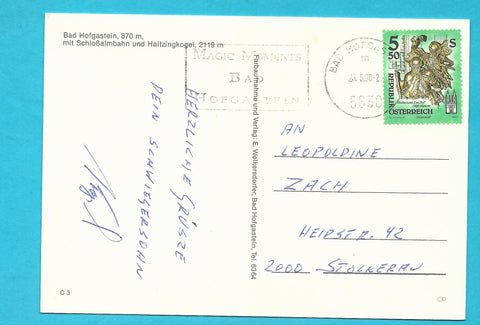 Bad Hofgastein, 870 m,
mit Schloßalmbahn und Haitzingkogel, 2119 m
MAGIC MOMENTS
BAD
HOFGASTEIN
BAD HOFGAST
5630
5 50
S
REPUBLIK
ÖSTERREICH
HERZLICHE GRÜSZE
DEIN SCHWIEGERSOHN
Farbaufnahme und Verlag: E. Wolkersdorfer, Bad Hofgastein, Tel. 6364
AN
LEOPOLDINE
ZACH
HEIDSTR. 42
2000 STOCKERAU
C 3